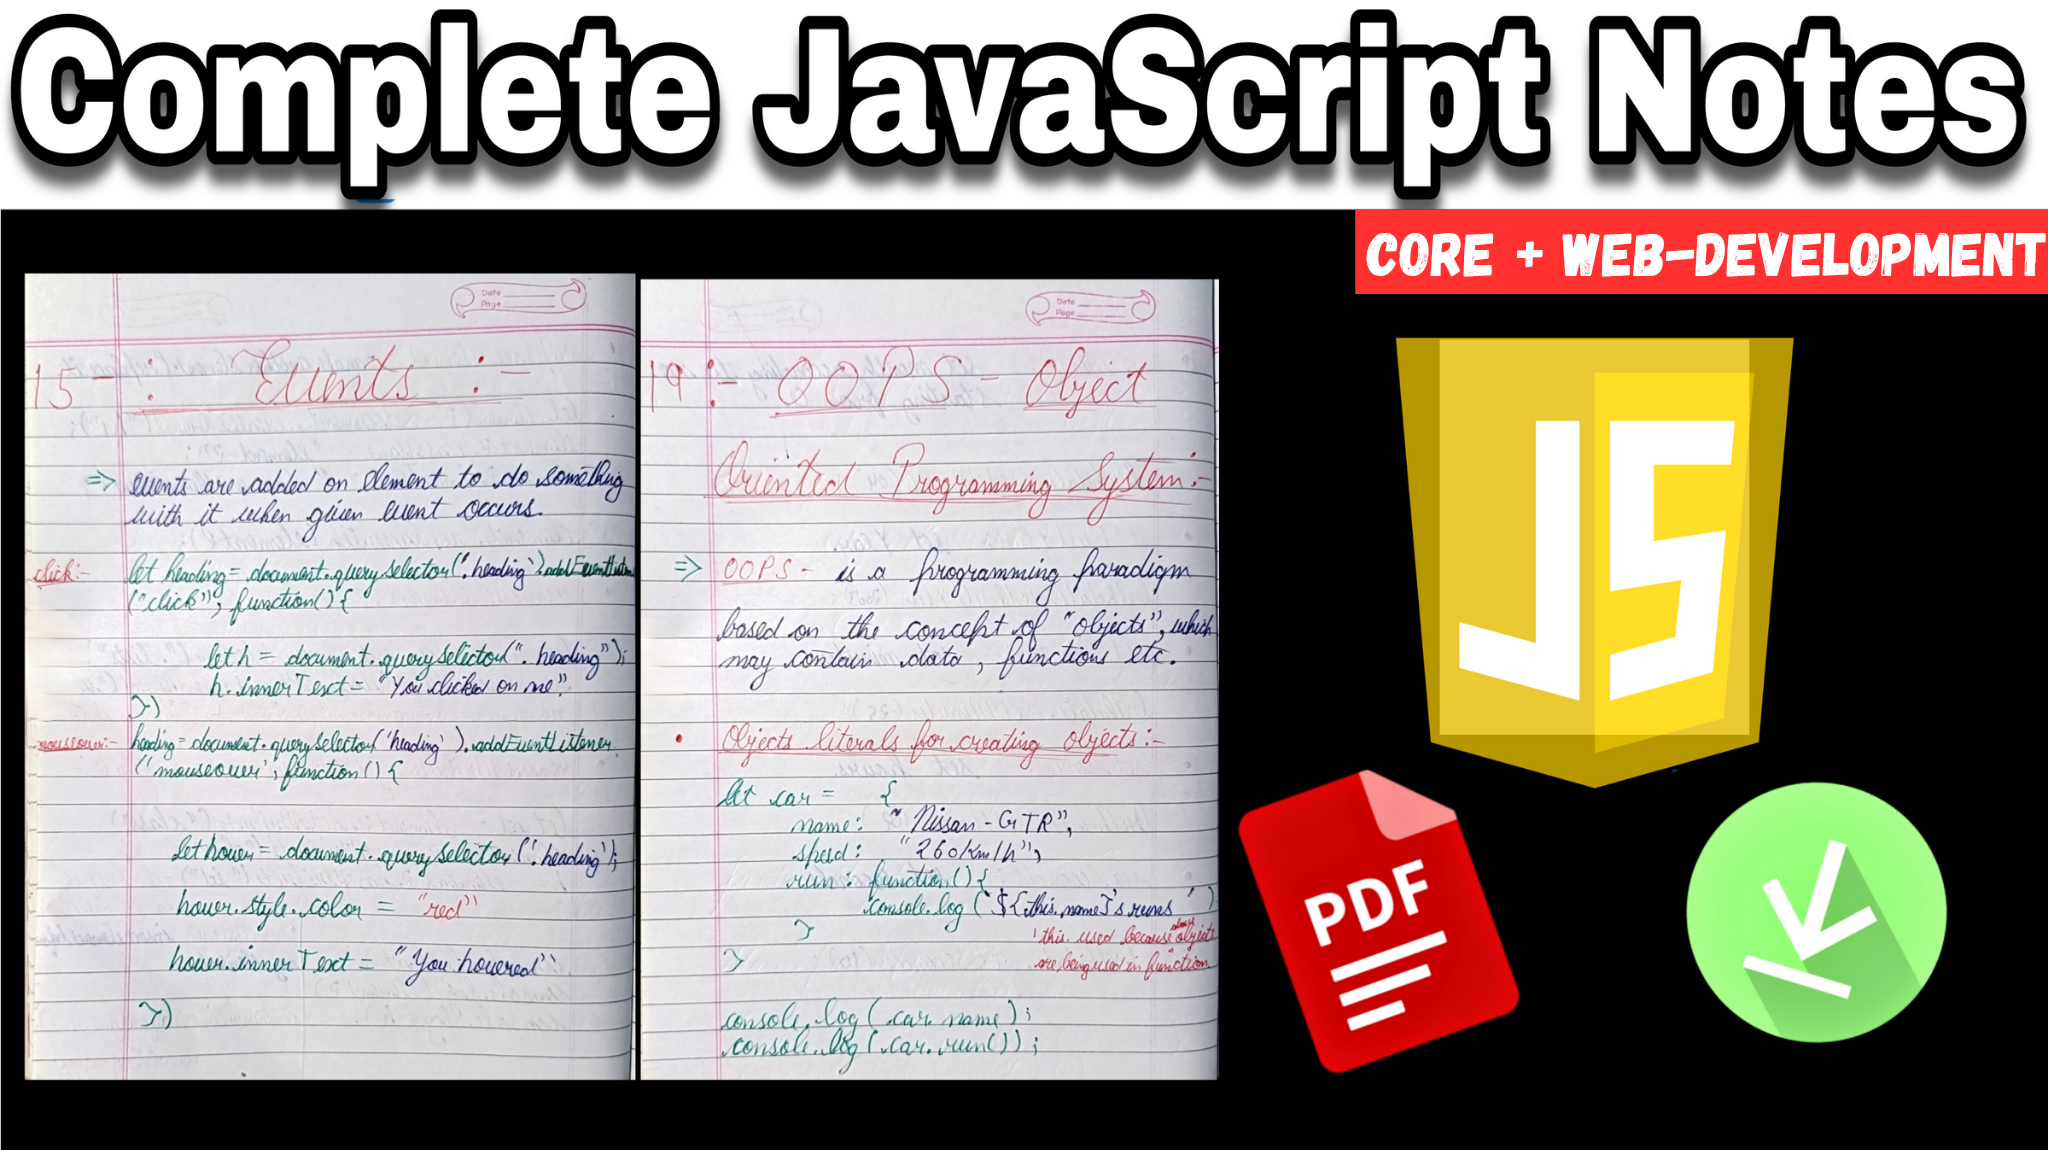 Complete JavaScript Notes
CORE + WEB-DEVELOPMENT
Date
Page
15 - : Events : -
=> events are added on element to do something
with it when given event occurs.
click:-
let heading = document.queryselector('.heading').addEventListen
("click", function() {
let h = document.queryselector(".heading");
h.innerText = "You clicked on me".
})
mouseover:-
heading = document.queryselector('heading').addEventListener
('mouseover', function() {
let hover = document.queryselector('.heading');
hover.style.color = "red"
hover.innerText = "You hovered"
})
Date
Page
19 :- OOPS - Object
Oriented Programming System:-
=> OOPS - is a programming paradigm
based on the concept of "objects", which
may contain data, functions etc.
• Objects literals for creating objects:-
let car = {
name: "Nissan-GTR",
speed: "260km/h",
run: function() {
console.log(`${this.name}'s runs `)
}
'this. used because objects
are being used in function
}
console.log(car.name);
console.log(car.run());
JS
PDF